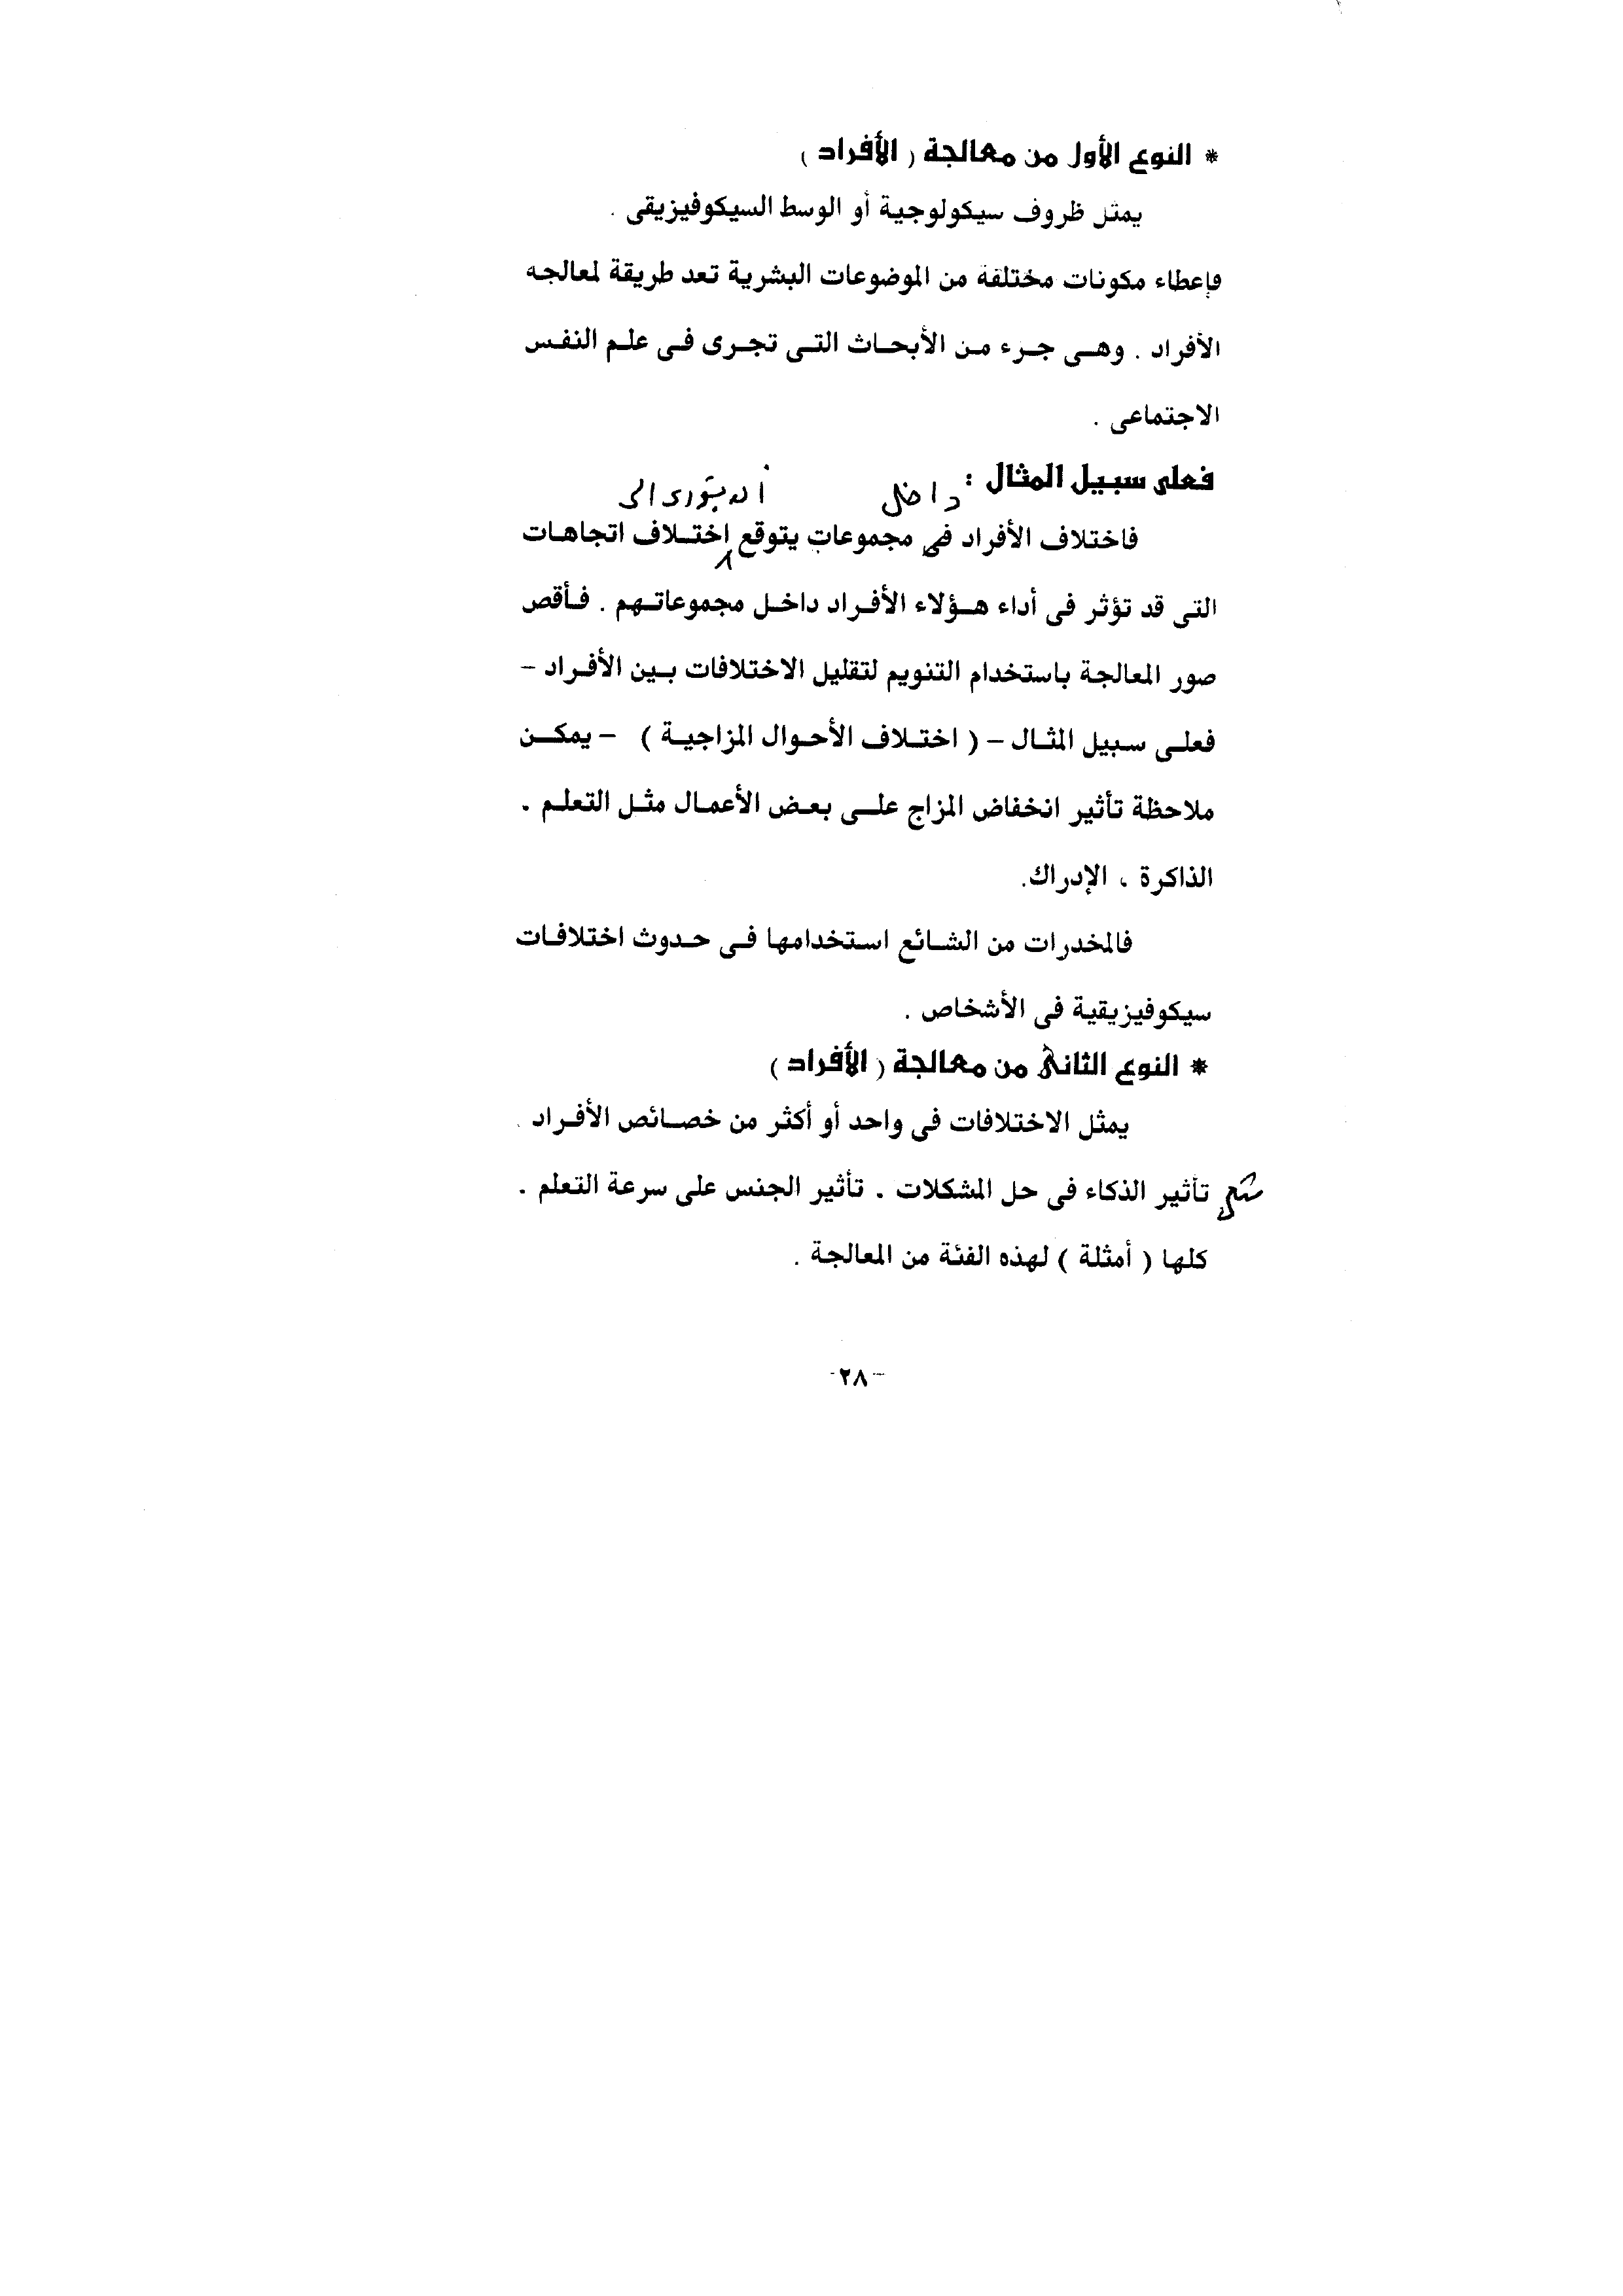 * النوع الأول من معالجة ( الأفراد )
يمثل ظروف سيكولوجية أو الوسط السيكوفيزيقى .
فإعطاء مكونات مختلفة من الموضوعات البشرية تعد طريقة لمعالجه
الأفراد . وهـى جـزء مـن الأبحـاث التـى تجـرى فـى علـم النفـس
الاجتماعى .
فعلى سبيل المثال :
داخل أن يؤدى الى
فاختلاف الأفراد فى مجموعات يتوقع اختـلاف اتجاهـات
التى قد تؤثر فى أداء هـؤلاء الأفـراد داخـل مجموعاتـهم . فـأقص
صور المعالجة باستخدام التنويم لتقليل الاختلافات بـين الأفـراد –
فعلـى سـبيل المثـال – ( اختـلاف الأحـوال المزاجيـة ) – يمكـن
ملاحظة تأثير انخفاض المزاج علـى بعـض الأعمـال مثـل التعلـم .
الذاكرة ، الإدراك.
فالمخدرات من الشـائع اسـتخدامها فـى حـدوث اختلافـات
سيكوفيزيقية فى الأشخاص .
* النوع الثانى من معالجة ( الأفراد )
يمثل الاختلافات فى واحد أو أكثر من خصـائص الأفـراد .
تأثير الذكاء فى حل المشكلات . تأثير الجنس على سرعة التعلم .
كلها ( أمثلة ) لهذه الفئة من المعالجة .
-٢٨-